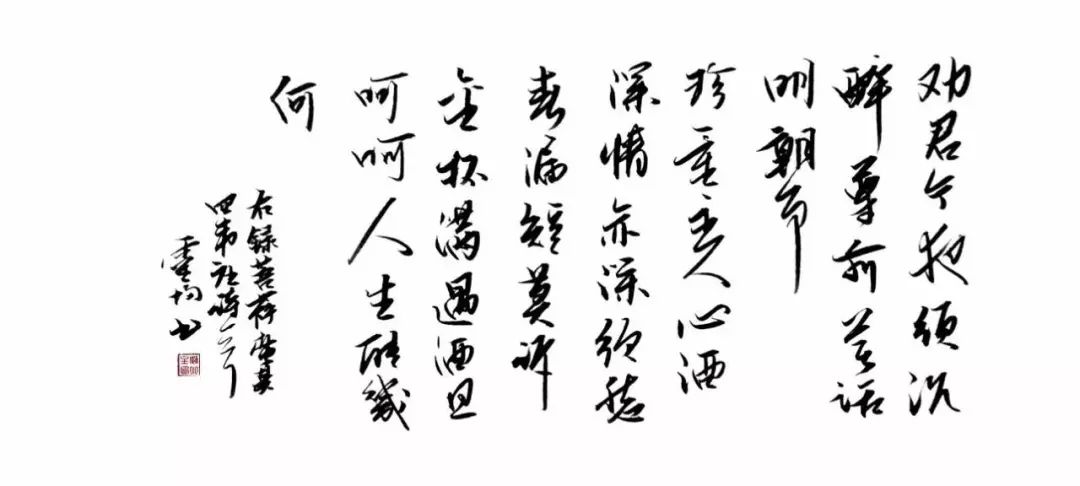 劝君今夜须沉
醉尊前莫话
明朝事
珍重主人心酒
深情亦深须愁
春漏短莫诉
金杯满遇酒且
呵呵人生能幾
何
右録菩萨蛮其
四韦庄词一首
书